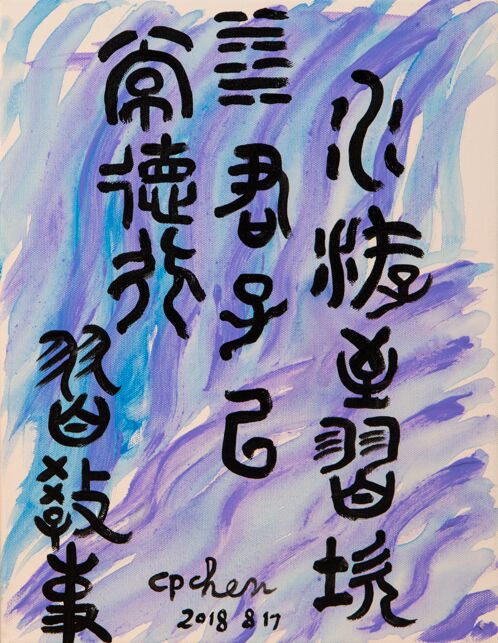 水洊至習坎
䷜ 君子以
常德行
習教事
cpchen
2018 8 17